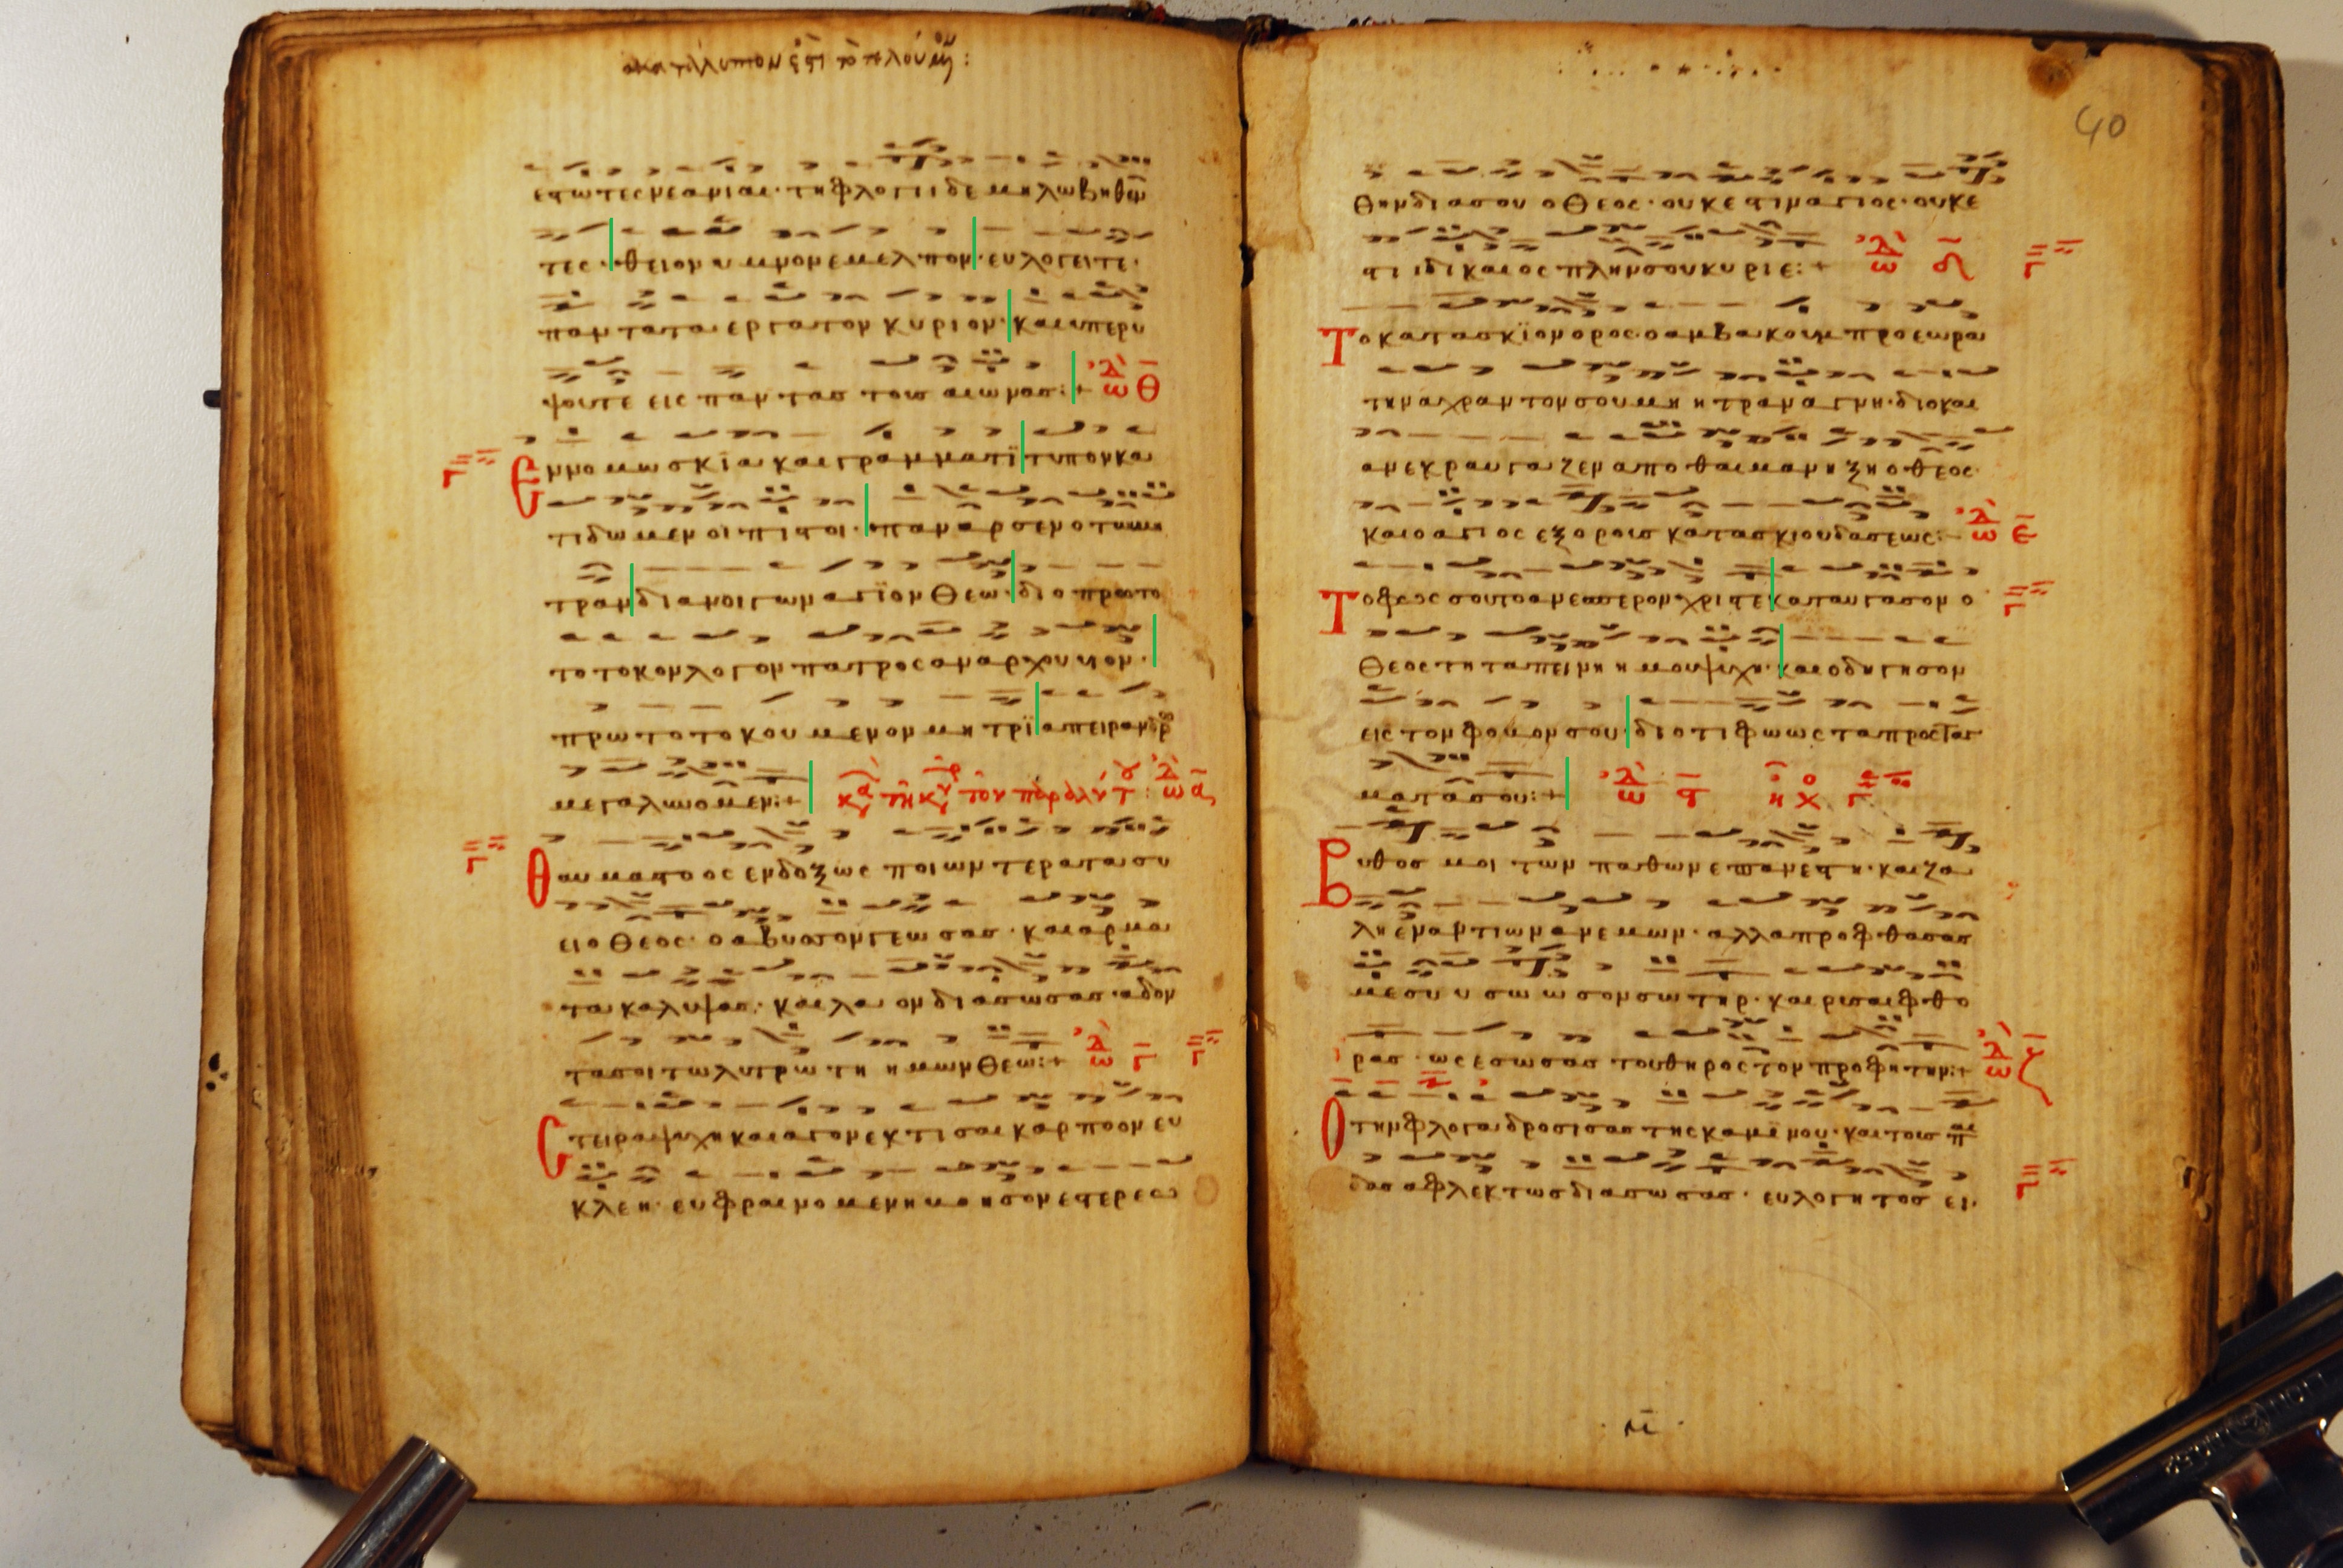 εστωτες μεσ αμιαι· τη φλογι δε μη λωβηθεν
τες· θειον υμνον εμελπον· ευλογειτε·
παντα τα εργα τον κυριον· και υπερυ
ψουτε εις παντας τους αιωνας:+ ωδ θ
Εν νομω σκια και γραμματι τυπον κα
τιδωμεν οι πιστοι· παν αρσεν ο την μη
τραν διανοιγων αγιον Θεω· διο πρωτο
τοτοκον λογον πατρος αναρχου υιον·
πρωτοτοκουμενον μητρι απειρανδρ
μεγαλυνομεν:+ ωδ α
Θαυμαστος ενδοξως ποιων τερατα συ
ει ο Θεος· ο αβυσσον γεωσας· και αρμα
τα καλυψας· και λαον διασωσας· αδον
τα σοι τω λυτρωτη ημων Θεω:+ ωδ γ
Στειρα ψυχη και αγονε κτισαι καρπον ευ
κλεη· ευφραινομενη βοησον εστερεω
40
θην δια σου ο Θεος· ουκ εστιν αγιος· ουκ ε
στι δικαιος πλην σου κυριε:+ ωδ δ
Το κατασκιον ορος ο αμβακουμ προεωρα
την αχραντον σου μητραν αγνη· διο και
ανεκραυγαζεν απο θαιμαν ηξη ο θεος·
και ο αγιος εξ ορους κατασκιου δασεως:- ωδ ε
Το φως σου το ανεσπερον χριστε καταυγασον ο
Θεος τη ταπεινη μου ψυχη· και οδηγησον
εις τον φοβον σου· διοτι φως τα προσταγ
ματα σου:+ ωδ ς ηχο
Βυθος μοι των παθων επανεστη· και ζα
λη εναντιων ανεμων· αλλα προφθασας
με συ σωσον σωτηρ· και ρυσαι φθο
ρας· ως εσωσας του θηρος τον προφητην:+ ωδ ζ
Ο την φλογα δροσισας της καμινου· και τους παι
δας αφλεκτως διασωσας· ευλογητος ει·